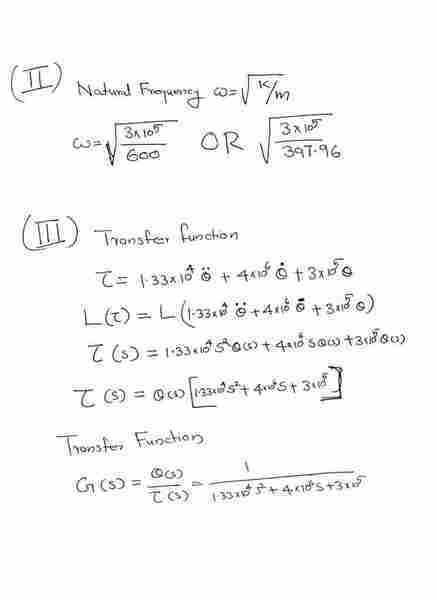 (II) Natural Frequency ω=√K/m
ω=√(3×10⁵/600) OR √(3×10⁵/397.96)
(III) Transfer function
τ = 1.33×10⁴ θ̈ + 4×10⁶ θ̇ + 3×10⁵ θ
L(τ) = L(1.33×10⁴ θ̈ + 4×10⁶ θ̇ + 3×10⁵ θ)
τ(s) = 1.33×10⁴ s² θ(s) + 4×10⁶ s θ(s) + 3×10⁵ θ(s)
τ(s) = θ(s) [1.33×10⁴ s² + 4×10⁶ s + 3×10⁵]
Transfer Function
G(s) = θ(s)/τ(s) = 1/(1.33×10⁴ s² + 4×10⁶ s + 3×10⁵)